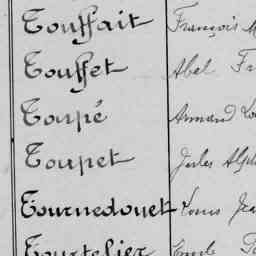 Touffait François
Touffet Abel
Toupé Armand
Toupet Jules
Tournedouet Louis
Tourtelier Emile